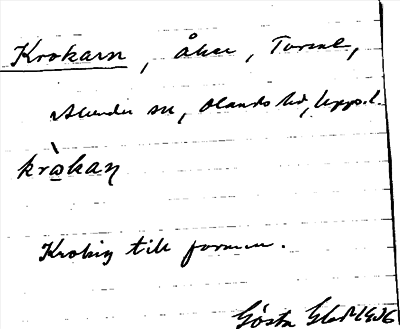 Krokarn, åker, Torsal,
Alunda sn, Olands hd, Upps. l.
kròkaɳ
Krokig till formen.
Gösta